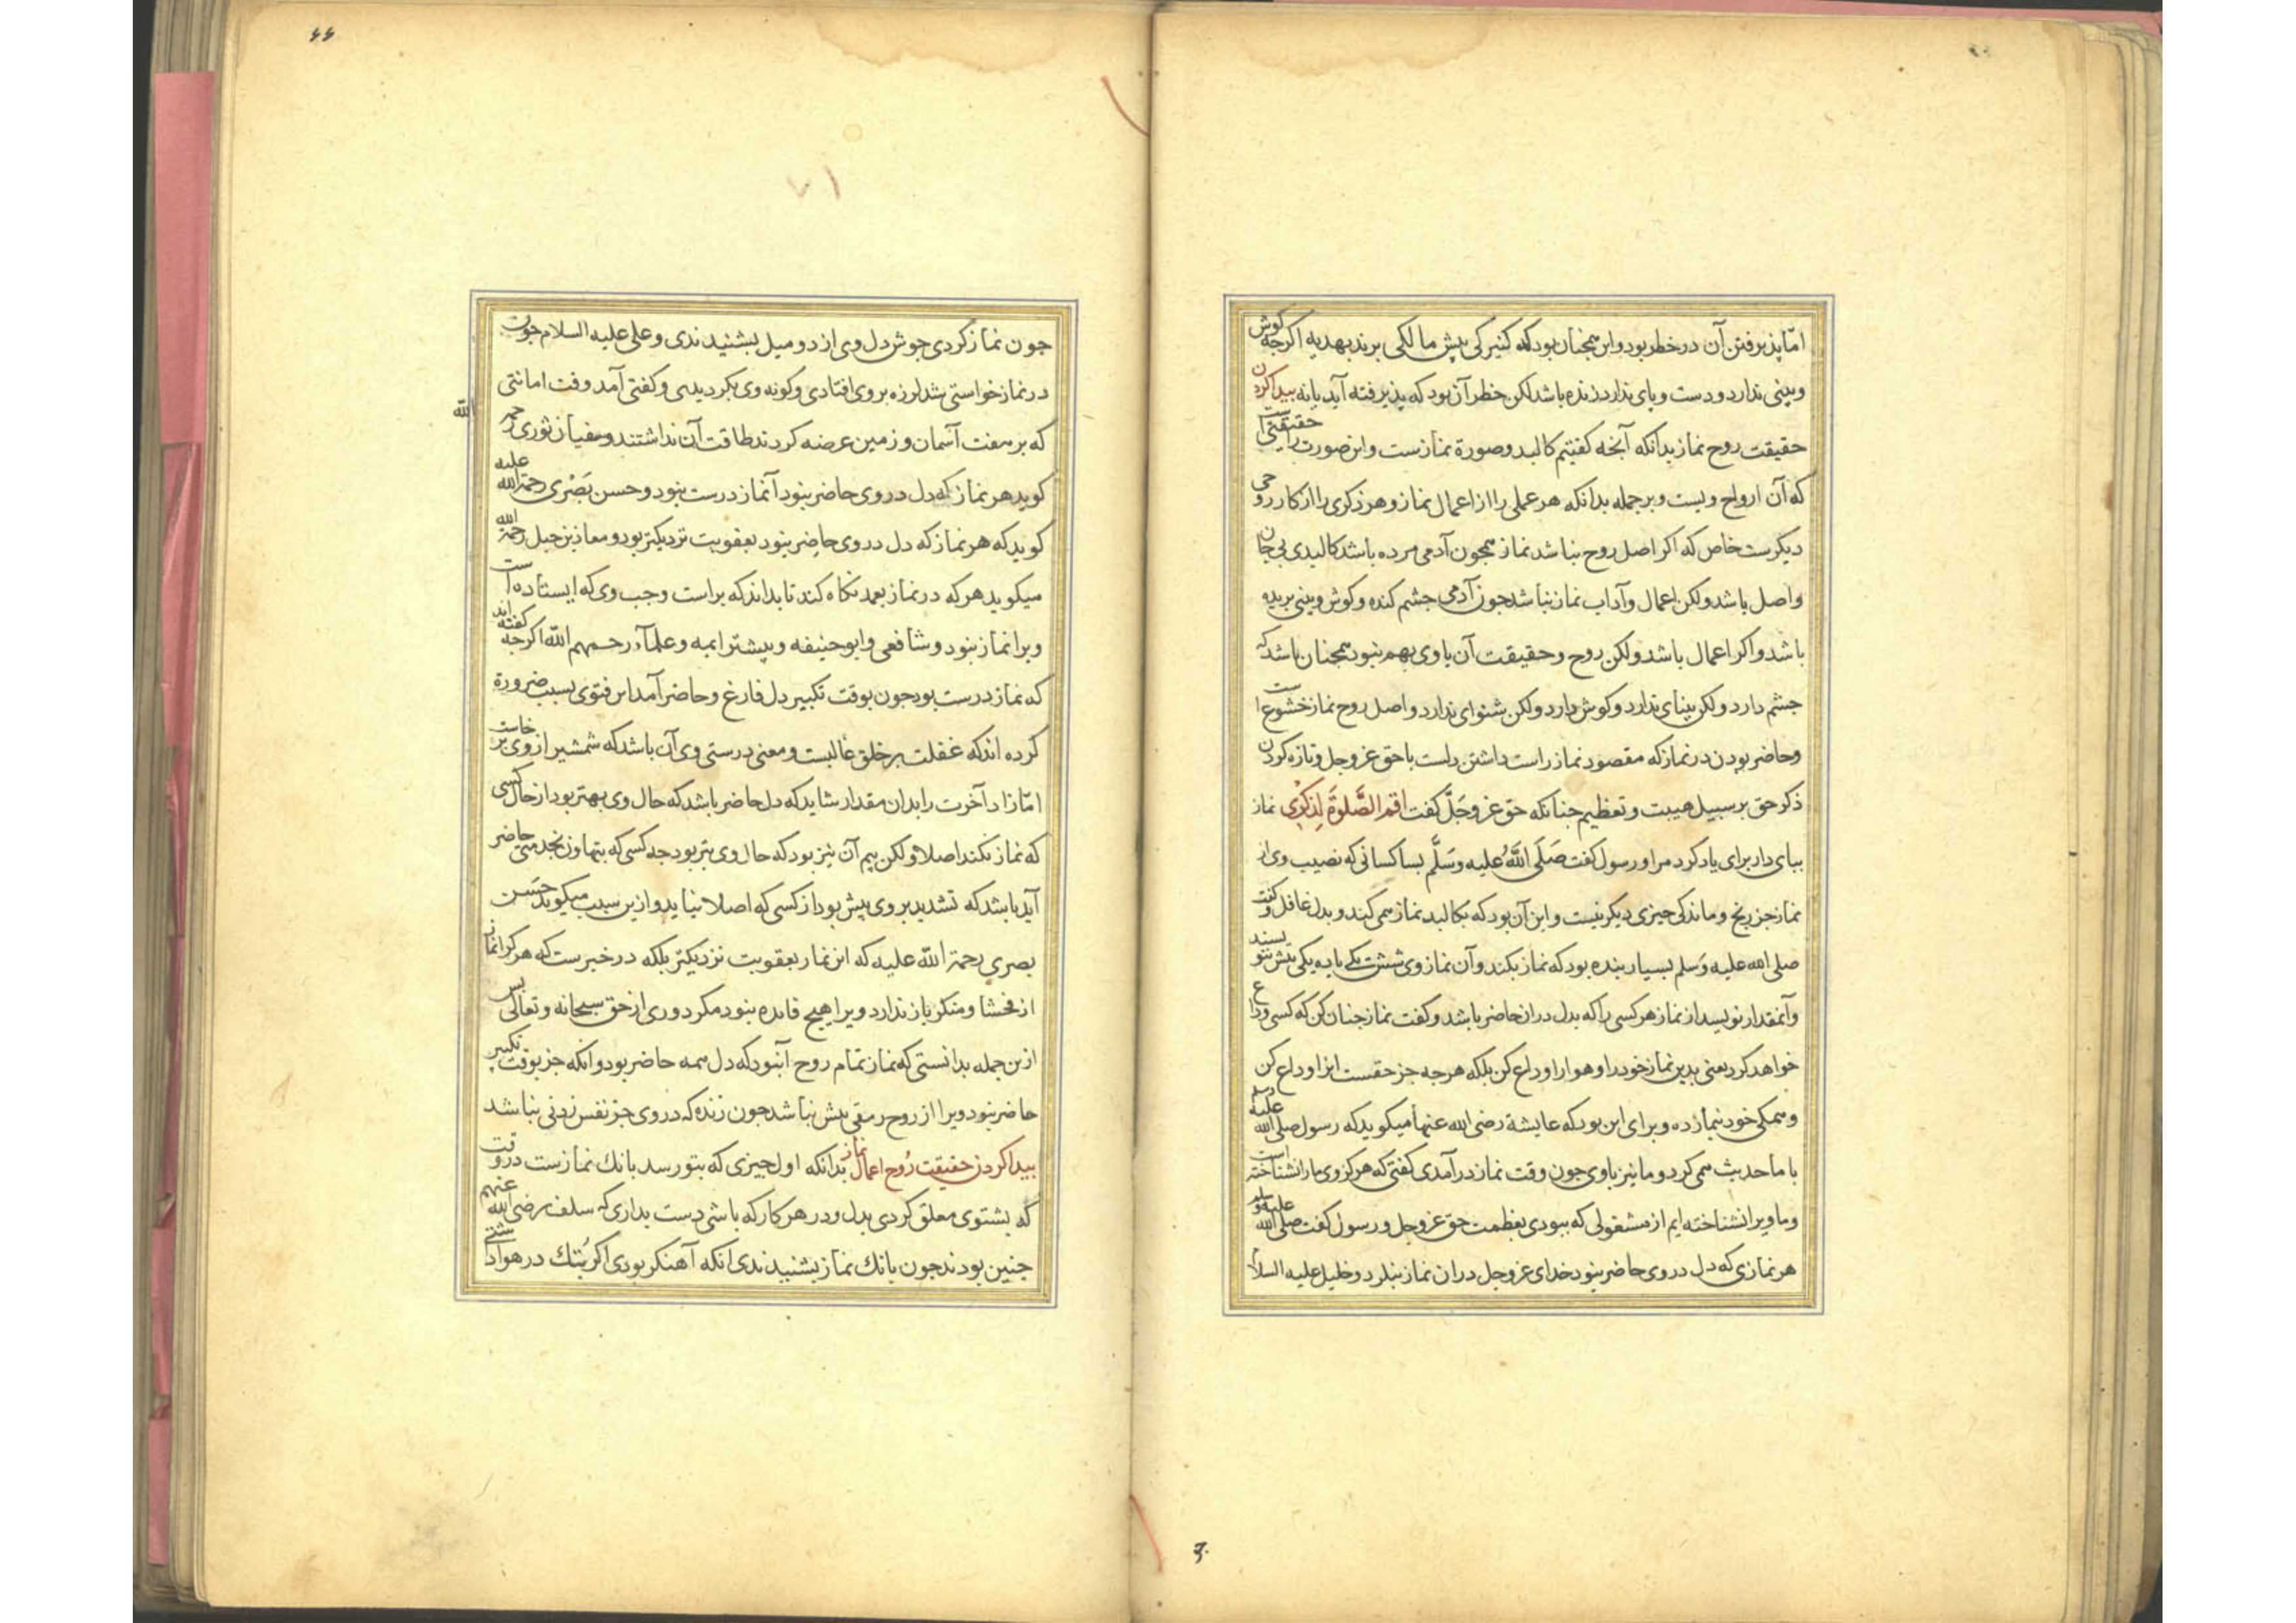 اما پذیرفتن آن در خطر بود و این همچنان بود که کنیزکی پیش مالکی برند بهدیه اگرجه کوش
و بینی ندارد و دست و پای ندارد زنده باشد لکن خطر آن بود که پذیرفته آید یا نه پیدا کردن
حقیقت روح نماز بدانکه آنجه کفتیم کالبد و صورة نمازست و این صورت را حقیقتی
که آن ارواح ویست و بر جمله بدانکه هر عملی را از اعمال نماز و هر ذکری را از کار روحی
دیکرست خاص که اکر اصل روح نباشد نماز همجون آدمی مرده باشد کالبدی بی جان
و اصل باشد ولکن اعمال و آداب نماز نباشد جون آدمی جشم کنده و کوش و بینی بریده
باشد و اکر اعمال باشد ولکن روح و حقیقت آن با وی بهم نبود همجنان باشد که
جشم دارد ولکن بینای ندارد و کوش دارد ولکن شنوای ندارد و اصل روح نماز خشوع است
و حاضر بودن در نماز که مقصود نماز راست داشتن دلست با حق عز و جل و تازه کردن
ذکر حق بر سبیل هیبت و تعظیم جنانکه حق عز و جَلَّ کفت اقم الصَّلوةَ لِذِکْرِی نماز
ببای دار برای یاد کرد مرا و رسول کفت صَلَی اللَّهُ علیه وَسَلَّم بسا کسانی که نصیب وی از
نماز جز رنج و ماندکی جیزی دیکر نیست و این آن بود که بکالبد نماز می کند و بدل غافل و کفت
صلی الله علیه وَسلم بسیار بنده بود که نماز بکند و آن نماز وی شش یکی یا ده یکی بیش ننویسند
و آنمقدار نویسد از نماز هر کسی را که بدل در ان حاضر باشد و کفت نماز جنان کن که کسی وداع
خواهد کرد یعنی بدین نماز خود را و هوا را وداع کن بلکه هرجه جز حقست انرا وداع کن
و همکی خود بنماز ده و برای این بود که عایشة رضی الله عنها میکوید که رسول صلی الله علیه وسلم
با ما حدیث می کرد و ما نیز با وی جون وقت نماز درآمدی کفتی که هرکز وی ما را نشناخته است
و ما ویرا نشناخته ایم از مشغولی که ببودی بعظمت حق عز و جل و رسول کفت صلی الله علیه وسلم
هر نمازی که دل در وی حاضر نبود خدای عز و جل در ان نماز ننکرد و خلیل علیه السلام
جون نماز کردی جوش دل وی از دو میل بشنیدندی و علی علیه السلام جون
در نماز خواستی شد لرزه بر وی افتادی و کونه وی بکردیدی و کفتی آمد وقت امانتی
که بر هفت آسمان و زمین عرضه کردند طاقت آن نداشتند و سفیان ثوری رحمه الله
کوید هر نماز که دل در وی حاضر نبود آن نماز درست نبود و حسن بَصْری رحمة الله علیه
کوید که هر نماز که دل در وی حاضر نبود بعقوبت نزدیکتر بود و معاذ بن جبل رحمه الله
میکوید هر که در نماز بعمد نکاه کند تا بداند که بر راست و جب وی که ایستاده است
ویرا نماز نبود و شافعی و ابو حنیفه و بیشتر ایمه و علمآء رحمهم الله اکرجه کفته اند
که نماز درست بود جون بوقت تکبیر دل فارغ و حاضر آمد این فتوی بسبب ضرورة
کرده اند که غفلت بر خلق غالبست و معنی درستی وی آن باشد که شمشیر از وی برخاست
اما زاد آخرت را بدان مقدار شاید که دل حاضر باشد که حال وی بهتر بود از حال کسی
که نماز نکند اصلا ولکن بیم آن نیز بود که حال وی بتر بود جه کسی که بتهاون بخدمتی حاضر
آید باشد که تشدید بر وی بیش بود از کسی که اصلا نیاید و ازین سبب میکوید حَسَن
بصری رحمة الله علیه که این نماز بعقوبت نزدیکتر بلکه در خبرست که هر کرا نماز
از فحشا و منکر باز ندارد ویرا هیج فائده نبود مکر دوری از حق سبحانه و تعالی بس
ازین جمله بدانستی که نماز تمام روح آن بود که دل همه حاضر بود وانکه جز بوقت تکبیر
حاضر نبود ویرا از روح رمقی بیش نباشد جون زنده که در وی جز نفس زدنی نباشد
پیدا کردن حقیقت رُوح اعمال نماز بدانکه اول جیزی که بتو رسد بانک نمازست در وقت
که بشنوی معلق کردی بدل و در هر کار که باشی دست بداری که سلف رضی الله عنهم
جنین بودند جون بانک نماز بشنیدندی انکه آهنکر بودی اکر پُتک در هوا داشتی